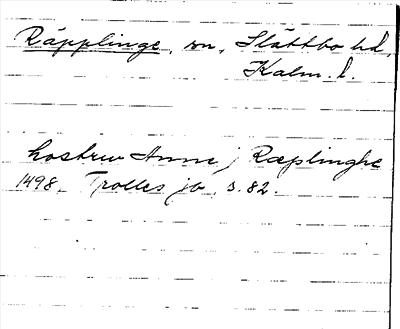 Räpplinge, sn, Slättbo hd,
Kalm. l.
hostrw Anne j Ræplinghe
1498. Trolles jb s. 82.